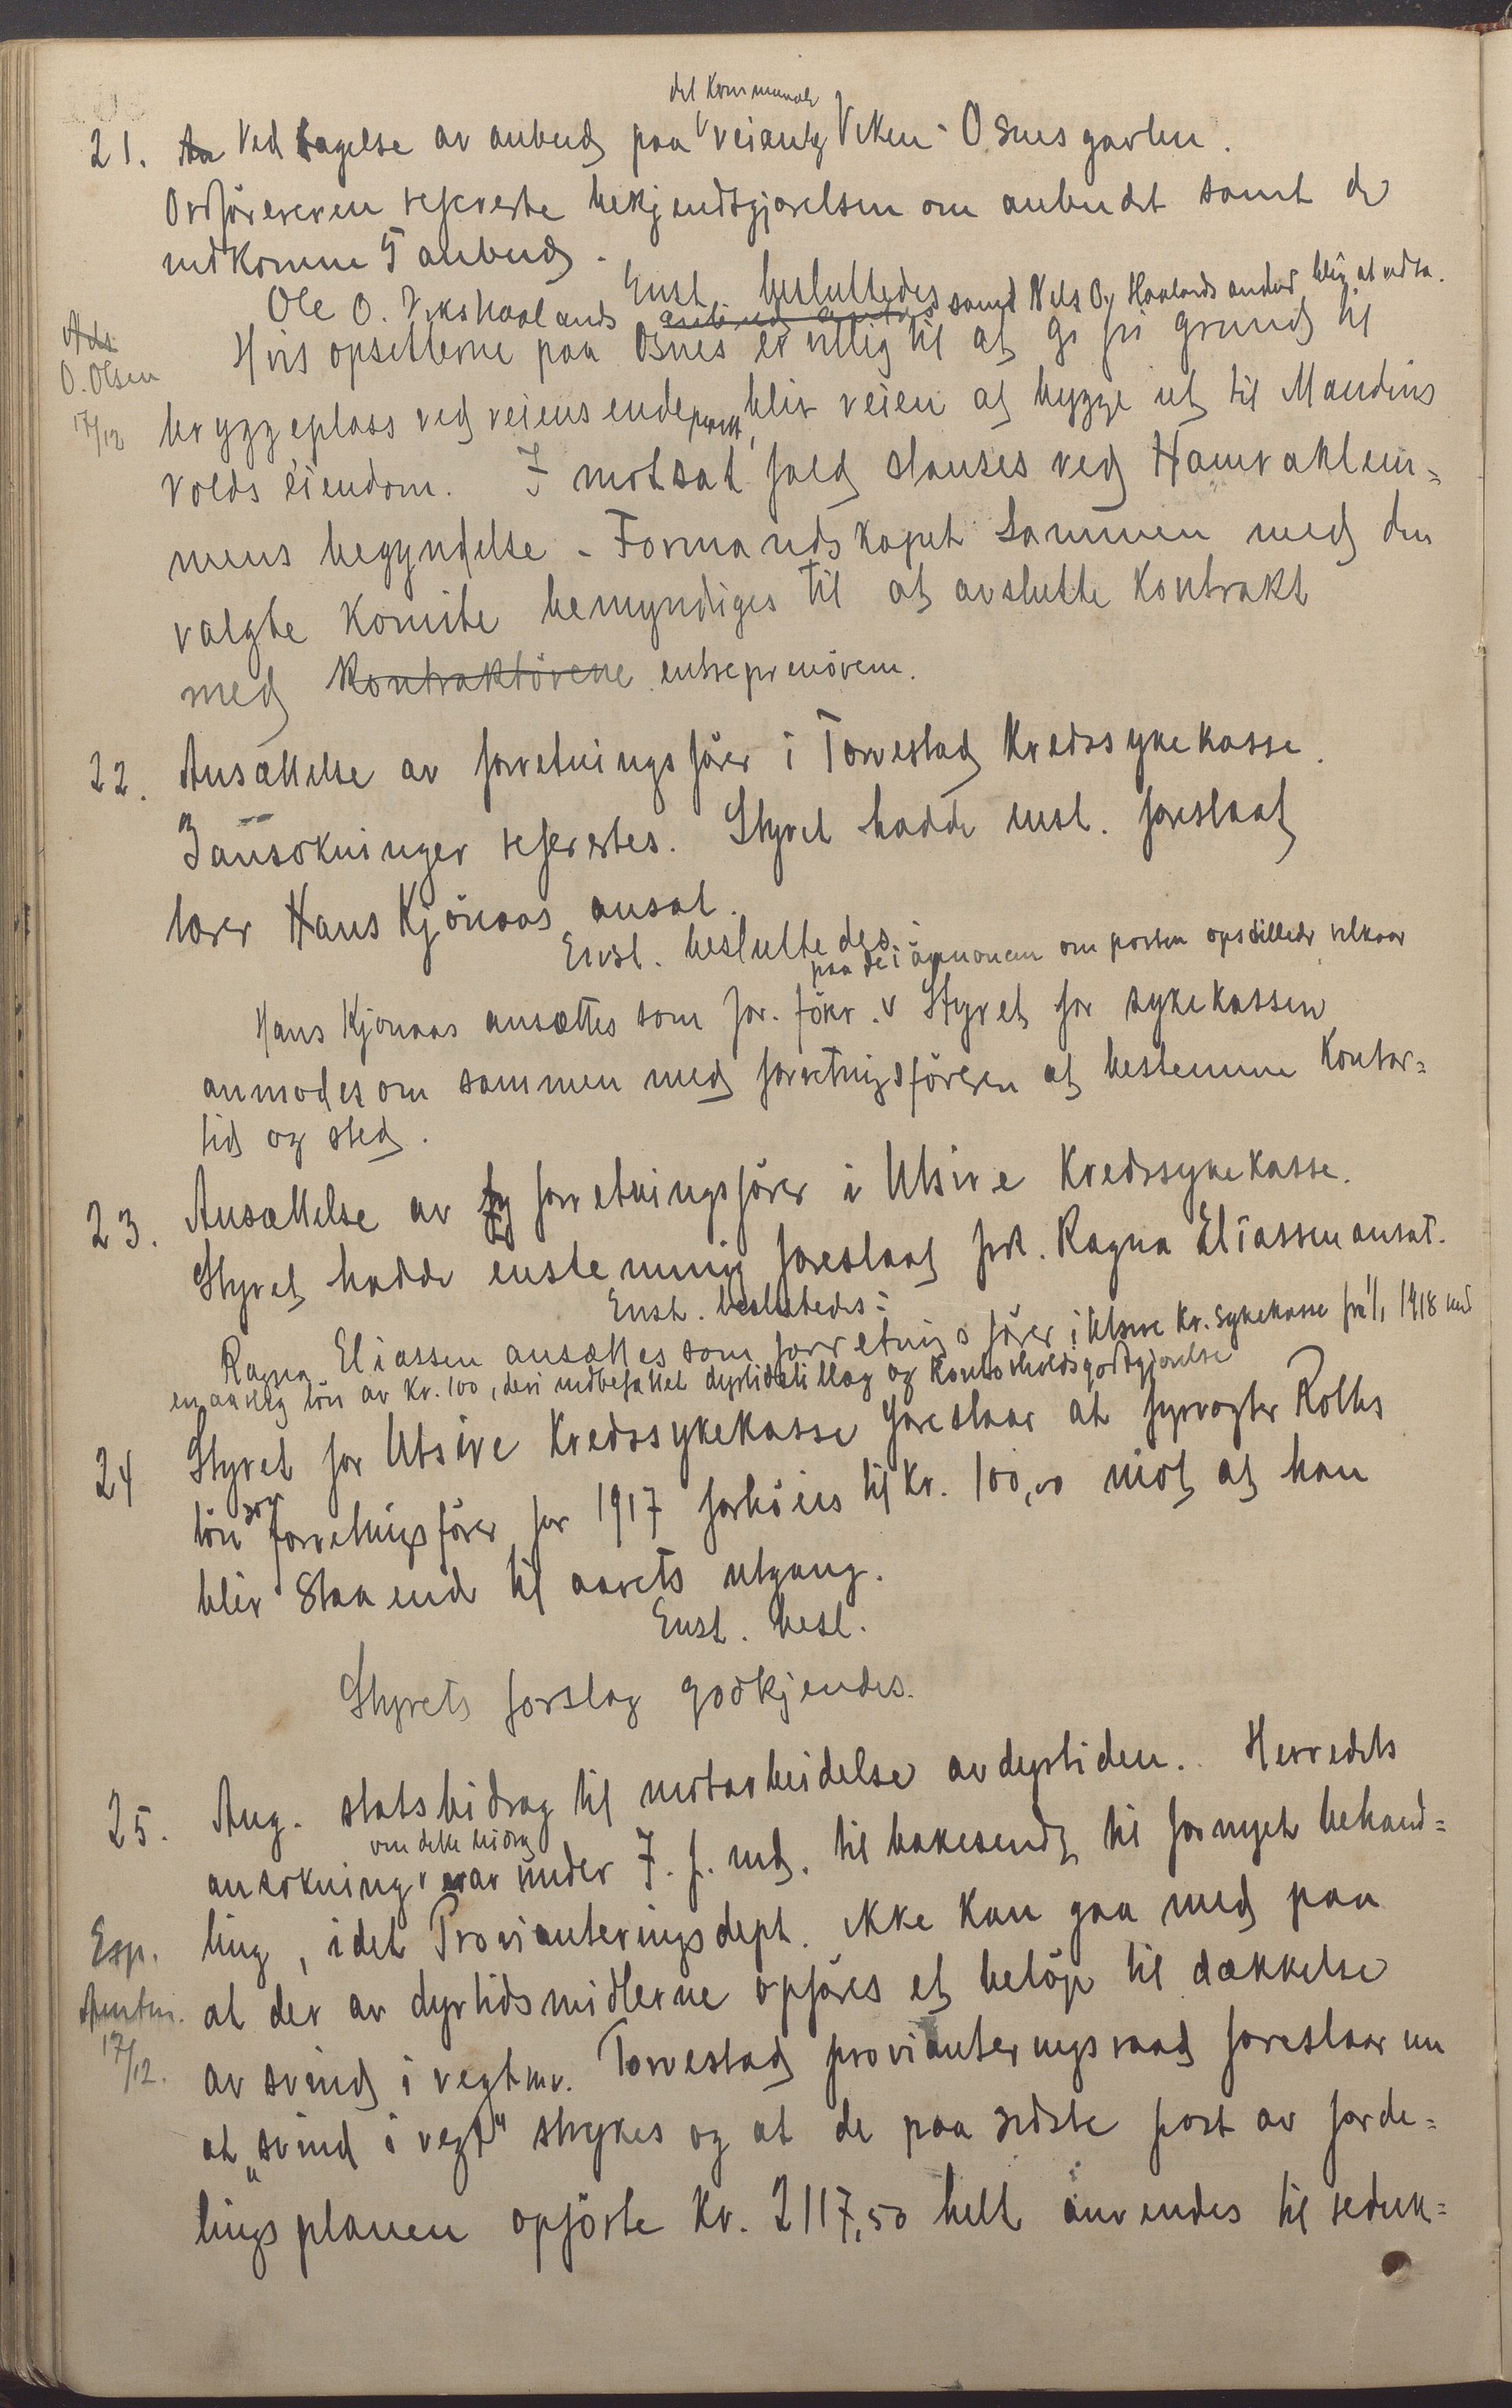 det kommunale
21. An Vedtagelse av anbud paa veianlæg Viken - Osnesgavlen.
Ordføreren refererte bekjendtgjørelsen om anbudet samt de
indkomne 5 anbud.
Enst. besluttedes
Ole O. Vikshaalands anbud antas samt Nels O. Haalands anbud blir at vedta.
Ads.
O. Olsen
17/12
Hvis opsitterne paa Osnes er villig til at gi fri grund til
bryggeplass ved veiens endepunkt, blir veien at bygge ut til Maudins
volds eiendom. I motsat fald stanses ved Hamraklem-
mens begyndelse. Formandskapet sammen med den
valgte komite bemyndiges til at avslutte kontrakt
med kontraktörene entreprenören.
22. Ansættelse av forretningsförer i Torvestad Kredssykekasse.
3 ansökninger refertes. Styret hadde enst. foreslaat
lærer Hans Kjönaas ansat.
Enst. besluttedes:
paa de i annonsen om posten opstillede vilkaar
Hans Kjönaas ansættes som for. förer. v Styret for sykekassen
anmodes om sammen med forretningsföreren at bestemme kontor-
tid og sted.
23. Ansættelse av forretningsförer i Utsire Kredssykekasse.
Styret hadde enstemmig foreslaat frk. Ragna Eliassen ansat.
Enst. besluttedes:
Ragna Eliassen ansættes som forretningsförer i Utsire kr. sykekasse fra 1/1 1918 med
en aarlig lön av kr. 100, deri indbefattet dyrtidstillæg og kontorholdsgodtgjörelse
24 Styret for Utsire Kredssykekasse foreslaar at fyrvogter Rolths
lön som forretningsförer for 1917 forhöies til kr. 100,00 mot at han
blir staaend til aarets utgang.
Enst. besl.
Styrets forslag godkjendes.
25. Ang. statsbidrag til motarbeidelse av dyrtiden. Herredets
om dette bidrag
ansökning v var under 7. f. md. tilbakesendt til fornyet behand-
ling, idet Provianteringsdept. ikke kan gaa med paa
Esp.
Amtm.
17/12.
at der av dyrtidsmidlerne opføres et belöp til dækkelse
av svind i vegt mv. Torvestad provianteringsraad foreslaar nu
at „svind i vegt" strykes og at de paa sidste post av forde-
lingsplanen opförte kr. 2117,50 helt anvendes til reduk-